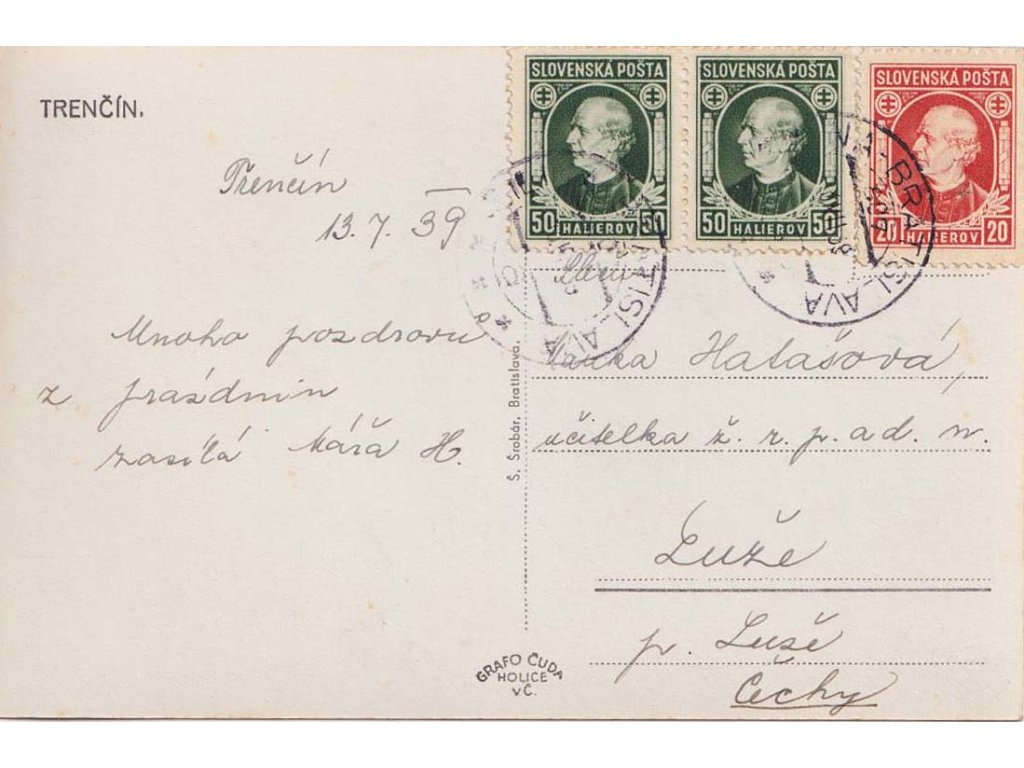 TRENČÍN.
Trenčín
13.7.39
Mnoho pozdravů
z prázdnin
zasílá Mářa H.
SLOVENSKÁ POŠTA
50 HALIEROV 50
SLOVENSKÁ POŠTA
50 HALIEROV 50
SLOVENSKÁ POŠTA
20 HALIEROV 20
BRATISLAVA
BRATISLAVA
Š. Šrobár, Bratislava.
Halašová,
učitelka ž. r. p. a d. n.
Luže
p. Luže
Čechy
GRAFO ČUDA
HOLICE
V Č.